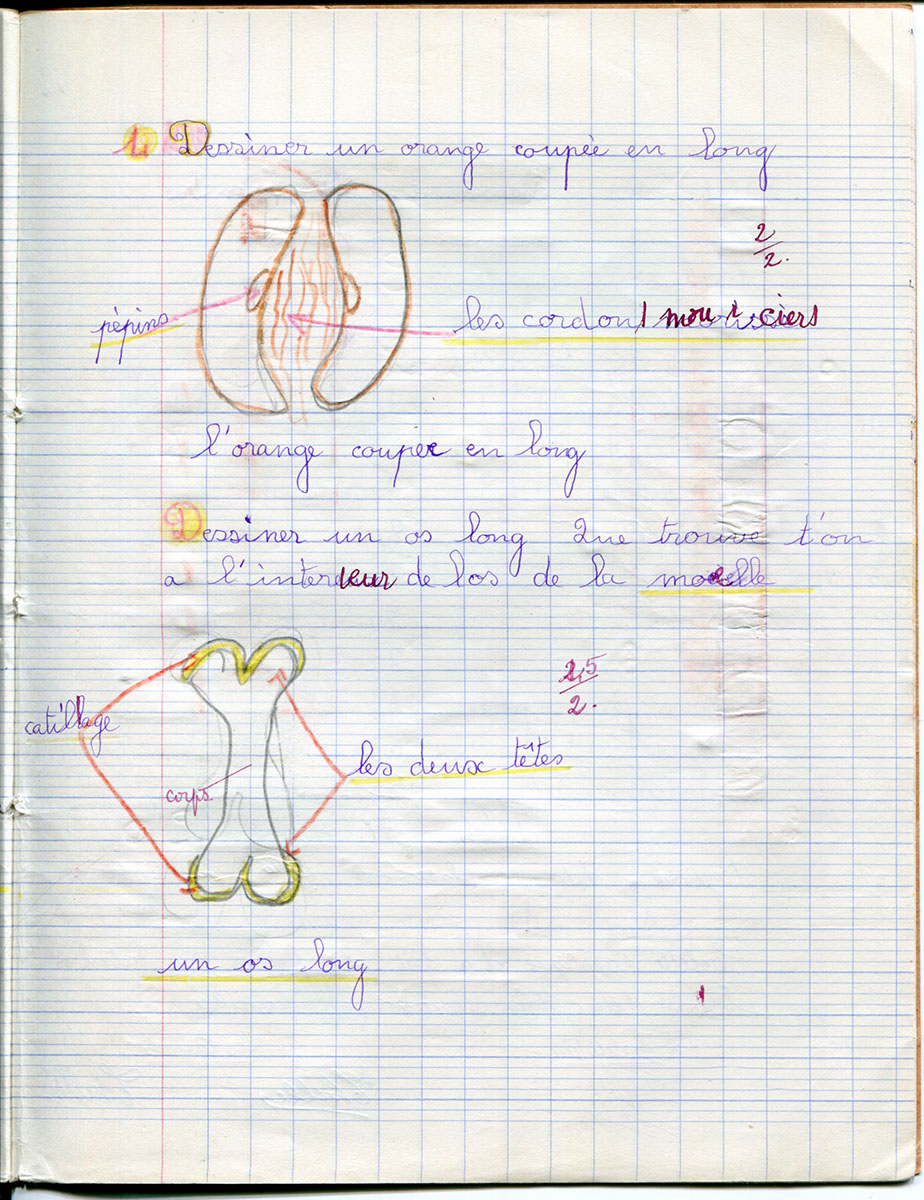 1) Dessiner un orange coupée en long
2/2.
pépins
les cordons nourriciers
l'orange coupee en long
Dessiner un os long Que trouve t'on
a l'interieur de los de la moelle
2,5/2.
catillage
les deux têtes
corps
un os long